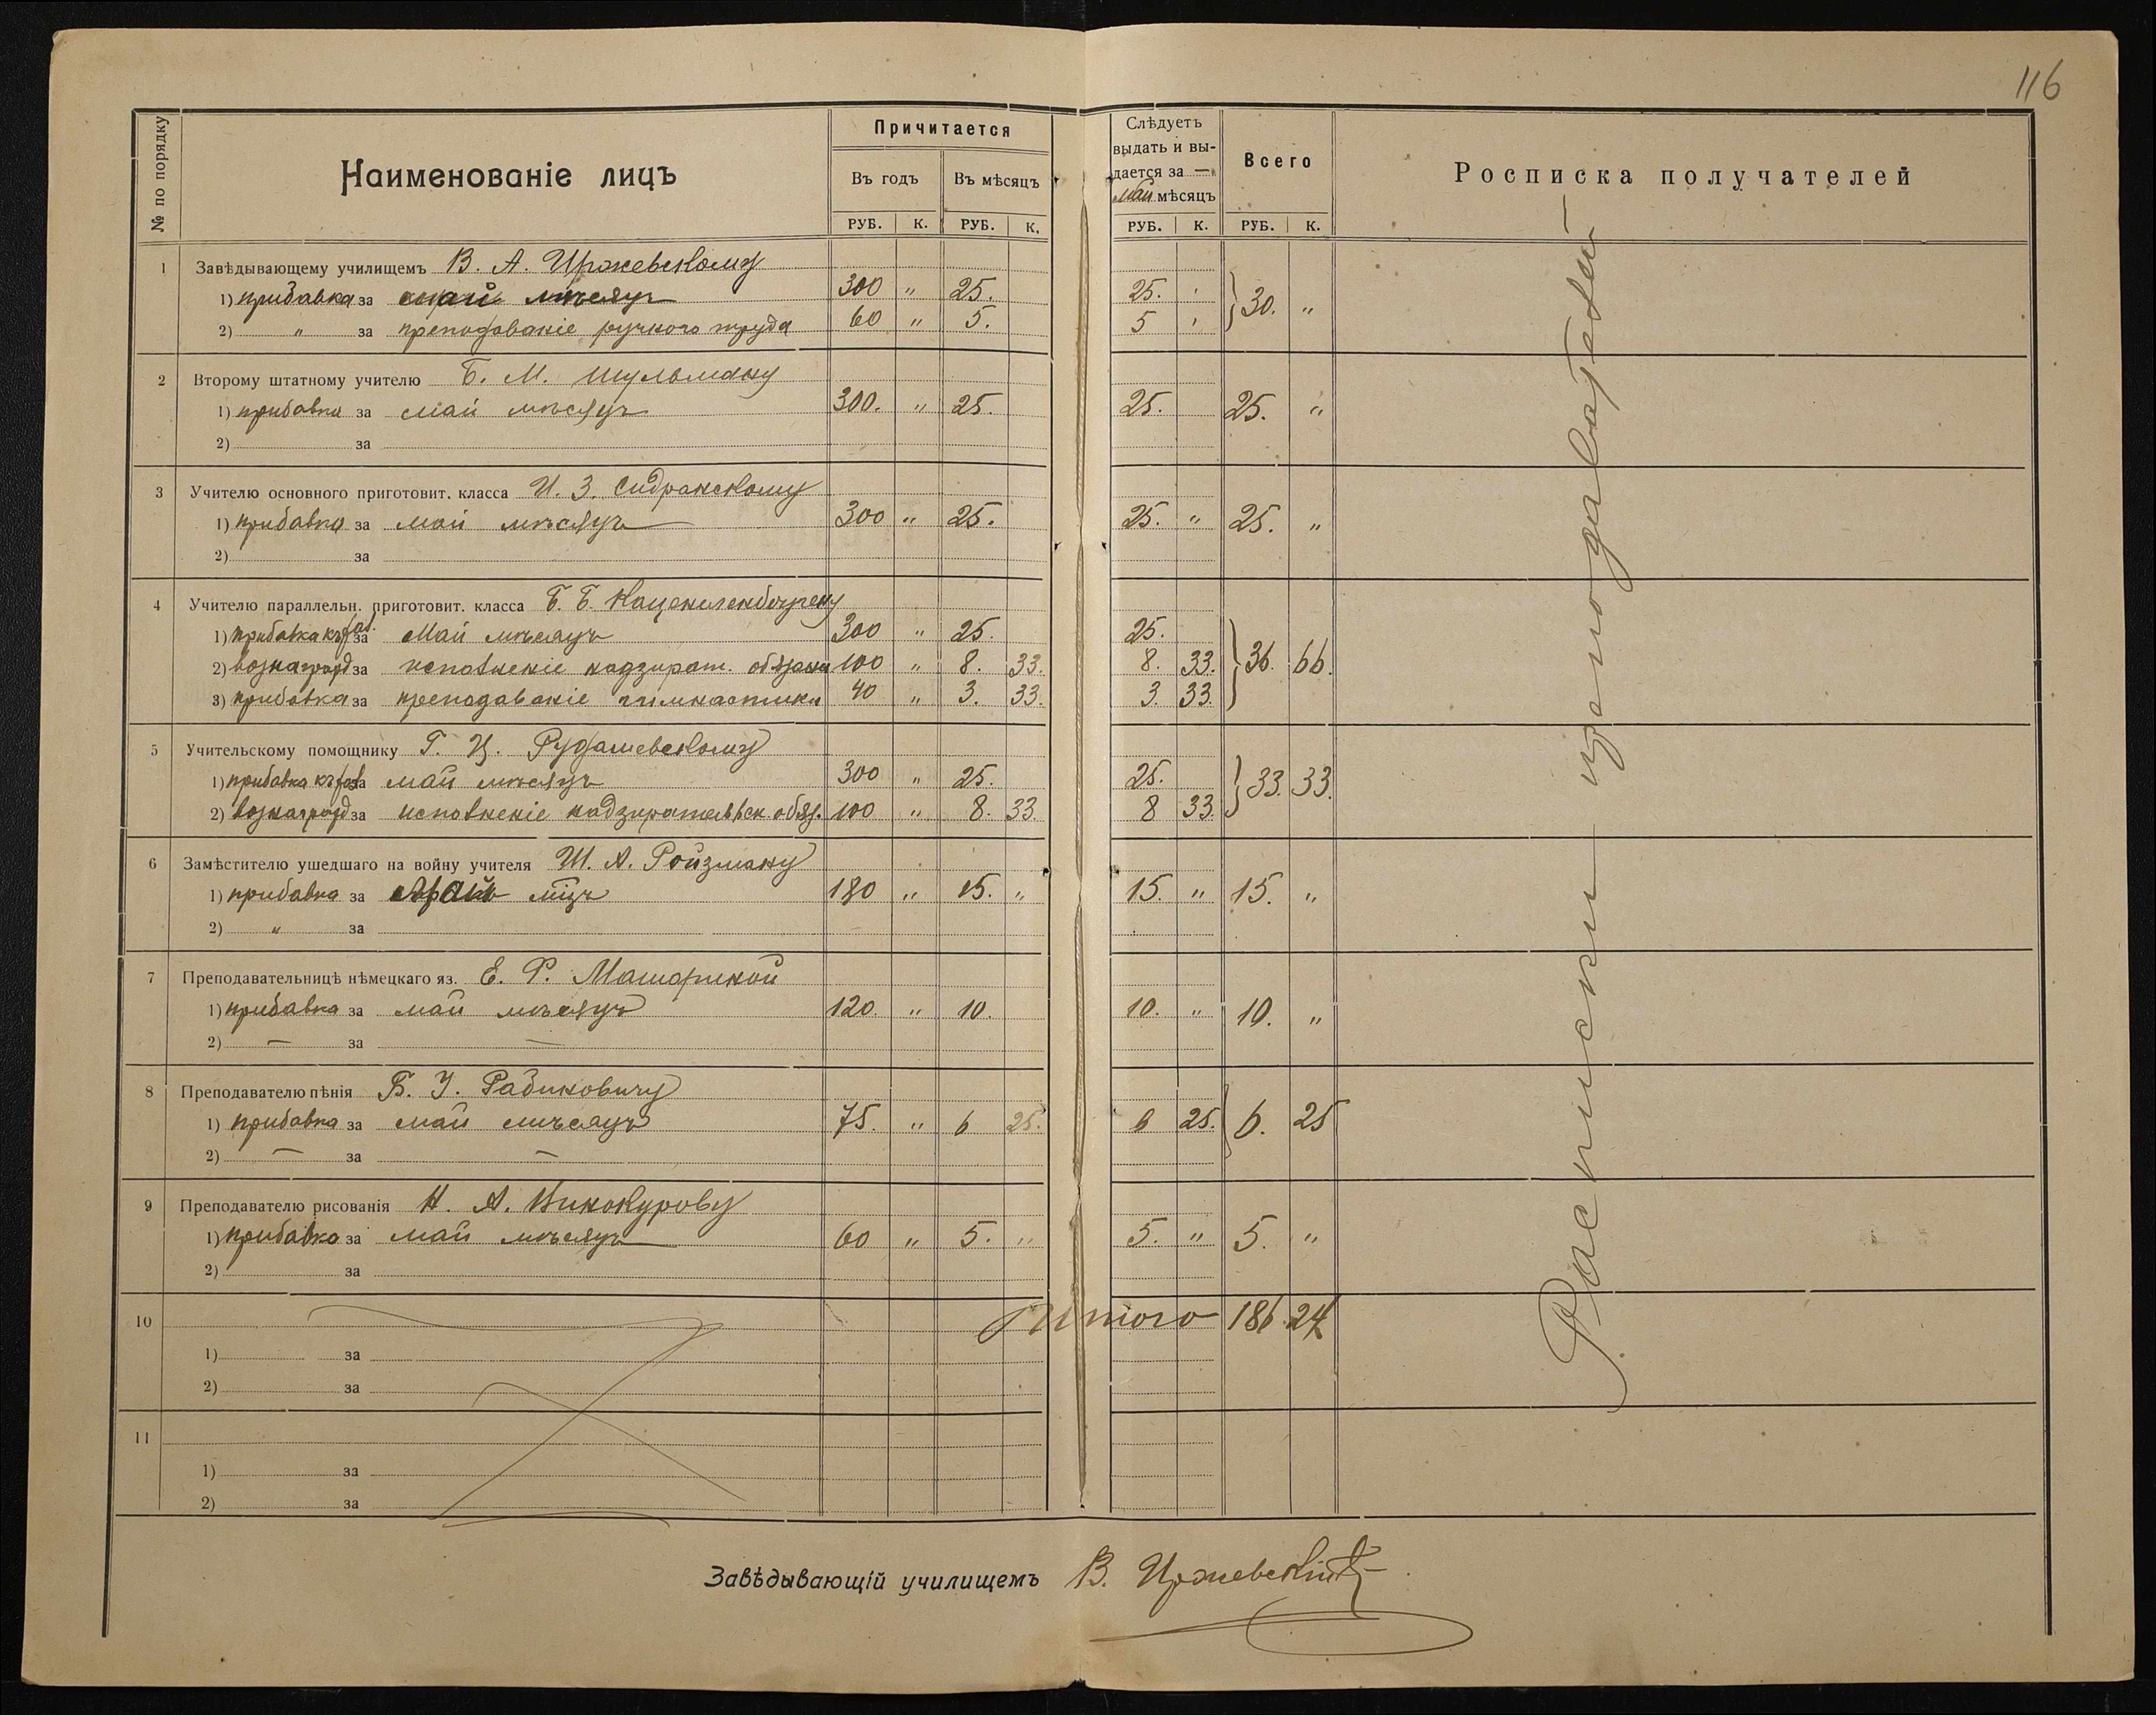 116
№ по порядку
Наименованіе лицъ
Причитается
Въ годъ
Въ мѣсяцъ
РУБ. К. РУБ. К.
Слѣдуетъ
выдать и вы-
дается за —
май мѣсяцъ
РУБ. К.
Всего
РУБ. К.
Росписка получателей
1 Завѣдывающему училищемъ В. А. Иржевскому
1) прибавка за май мѣсяцъ 300 " 25. 25. ' } 30. "
2) " за преподованіе ручного труда 60 " 5. 5 '
2 Второму штатному учителю Б. М. Шульману
1) прибавка за май мѣсяцъ 300. " 25. 25. 25. "
2) за
3 Учителю основного приготовит. класса И. З. Сидранскому
1) прибавка за май мѣсяцъ 300 " 25. 25. " 25. "
2) за
4 Учителю параллельн. приготовит. класса Б. Б.
1) прибавка къ за май мѣсяцъ 300 " 25. 25.
2) вознагражд за исполненіе надзират. обязан 100 " 8. 33. 8. 33. } 36. 66.
3) прибавка за преподаваніе гимнастики 40 " 3. 33. 3. 33.
5 Учительскому помощнику Г. И. Рудашевскому
1) прибавка къ за май мѣсяцъ 300 " 25. 25. } 33. 33.
2) вознагражд за исполненіе надзирательск. обяз. 100 " 8. 33. 8 33.
6 Замѣстителю ушедшаго на войну учителя Ш. А. Ройзману
1) прибавка за май мцъ 180 " 15. " 15. " 15. "
2) " за
7 Преподавательницѣ нѣмецкаго яз. Е. Р.
1) прибавка за май мѣсяцъ 120. " 10. 10. " 10. "
2) — за —
8 Преподавателю пѣнія Б. І. Рабиновичу
1) прибавка за май мѣсяцъ 75. " 6 25. 6 25. } 6. 25
2) — за —
9 Преподавателю рисованія Н. А. Винокурову
1) прибавка за май мѣсяцъ 60 " 5. " 5. " 5. "
2) за
10 Итого 186 24
1) за
2) за
11
1) за
2) за
Расписки — преподавателей —
Завѣдывающій училищемъ В. Иржевскій